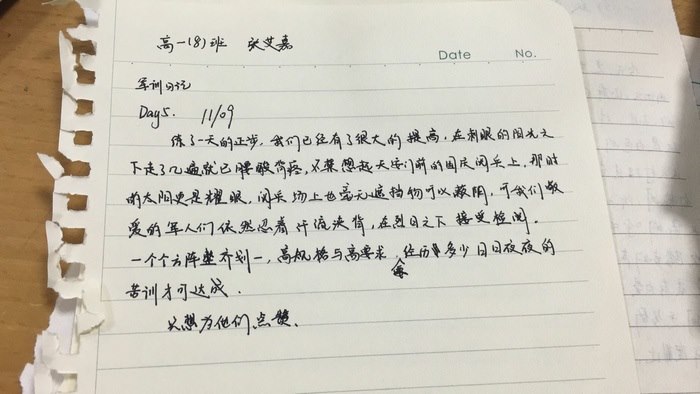 高一(8)班 张艾嘉
Date No.
军训日记
Day5. 11/09
练了一天的正步,我们已经有了很大的提高,在刺眼的阳光之
下走了几遍就已腰酸背疼,不禁想起天安门前的国庆阅兵上,那时
的太阳更是耀眼,阅兵场上也毫无遮挡物可以遮阴,可我们敬
爱的军人们依然忍着汗流浃背,在烈日之下接受检阅.
一个个方阵整齐划一,高规格与高要求,经历多少日日夜夜的
苦训才可达成.
只想为他们点赞.